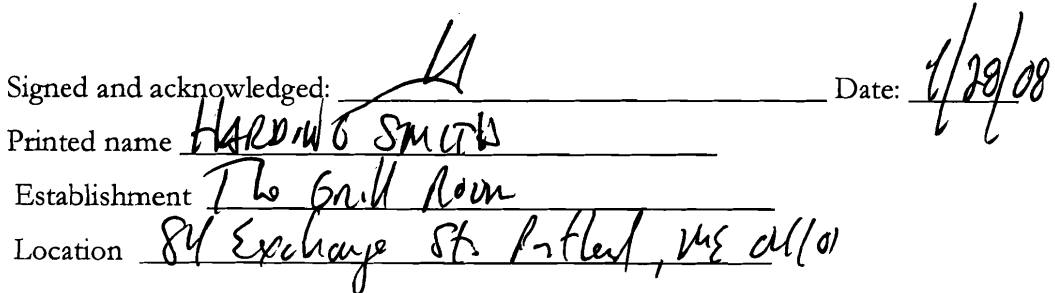 Signed and acknowledged: Date: 1/28/08
Printed name HARDING SMITH
Establishment The Grill Room
Location 84 Exchange St. Portland, ME 04101